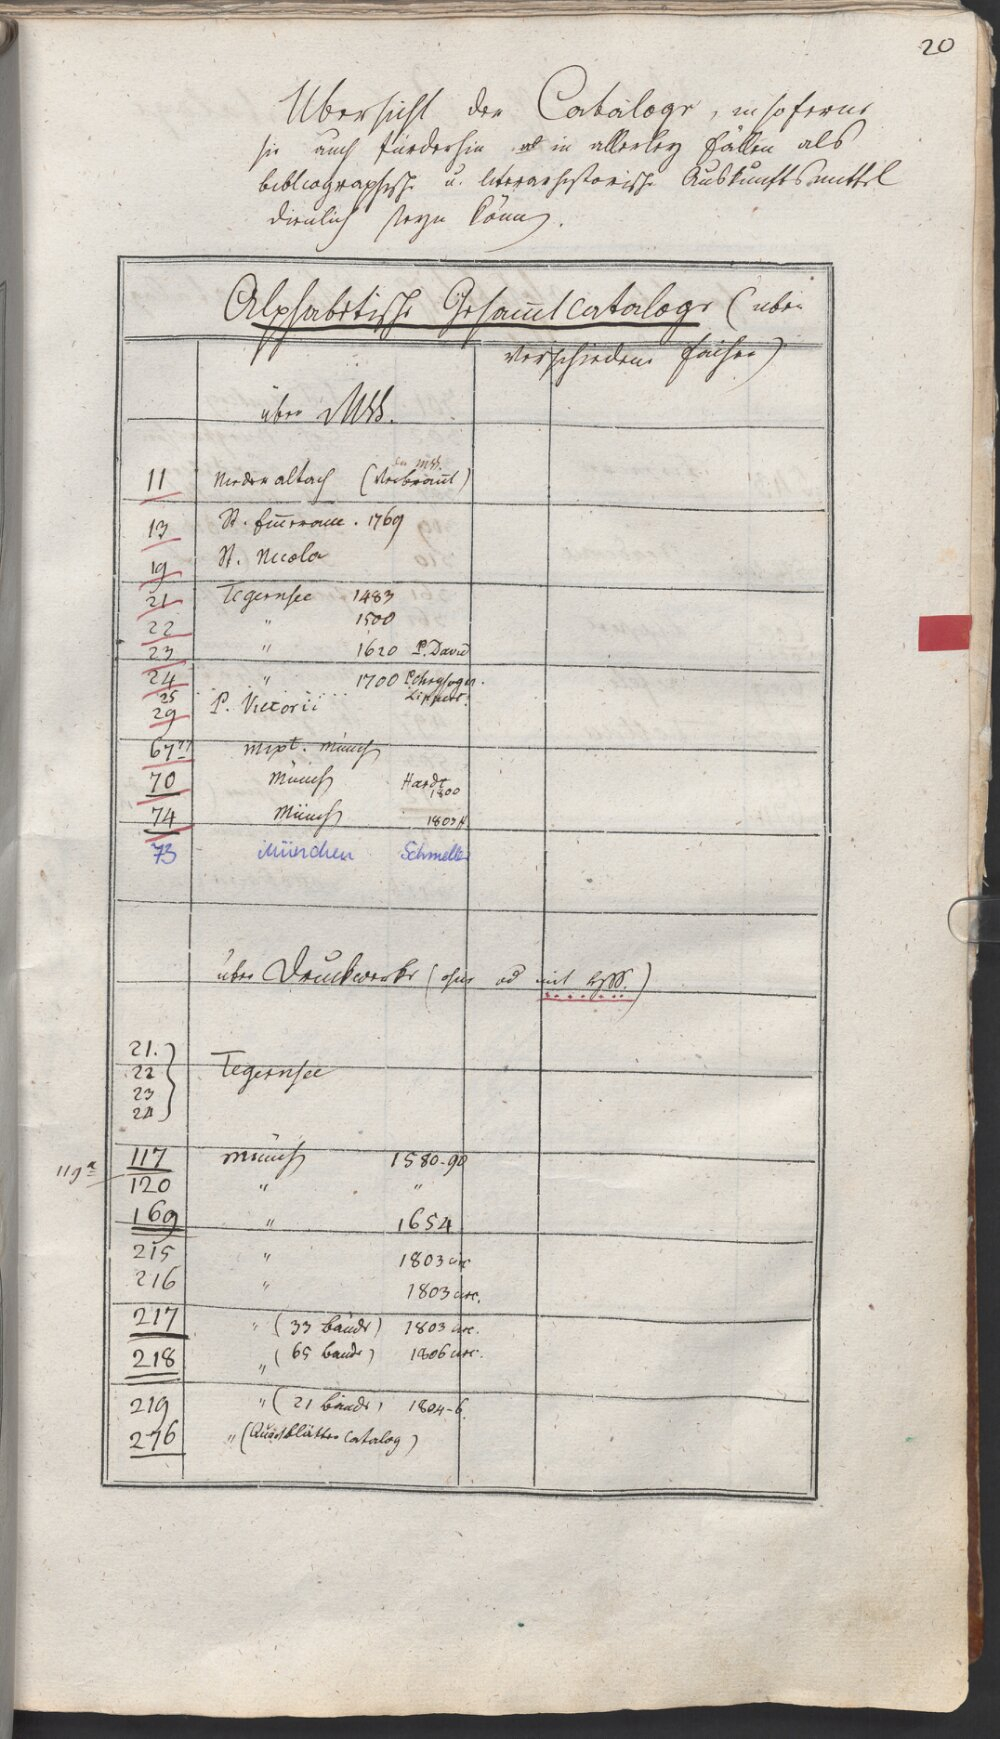 20
Übersicht der Cataloge, insoferne
sie auch fürderhin in allerley Fällen als
bibliographische u. literarhistorische Auskunftsmittel
dienlich seyn könn̄.
Alphabetische Gesam̄tcataloge (über
verschiedene Fächer)
über MSS.
der MSS.
11 Niederaltach (verbrannt)
13 St. Emmeram. 1769
19 St. Nicola
21 Tegernsee 1483
22 " 1500
23 " 1620 P. David
24 " 1700 P. Chrysogon.
25 Lippert.
29 P. Victorii
67 mspt. Münch
70 Münch Hardt
1800
74 Münch 1803
73 München Schmeller
über Druckwerke (ohne od mit HSS.)
21.
22 Tegernsee
23
24
117 Münch 1580-90
119a
120 " "
169 " 1654
215 " 1803 etc
216 " 1803 etc.
217 " (33 Bände) 1803 etc.
218 " (65 Bände) 1806 etc.
219 " (21 Bände) 1804-6.
276 " (Quartblätter Catalog)